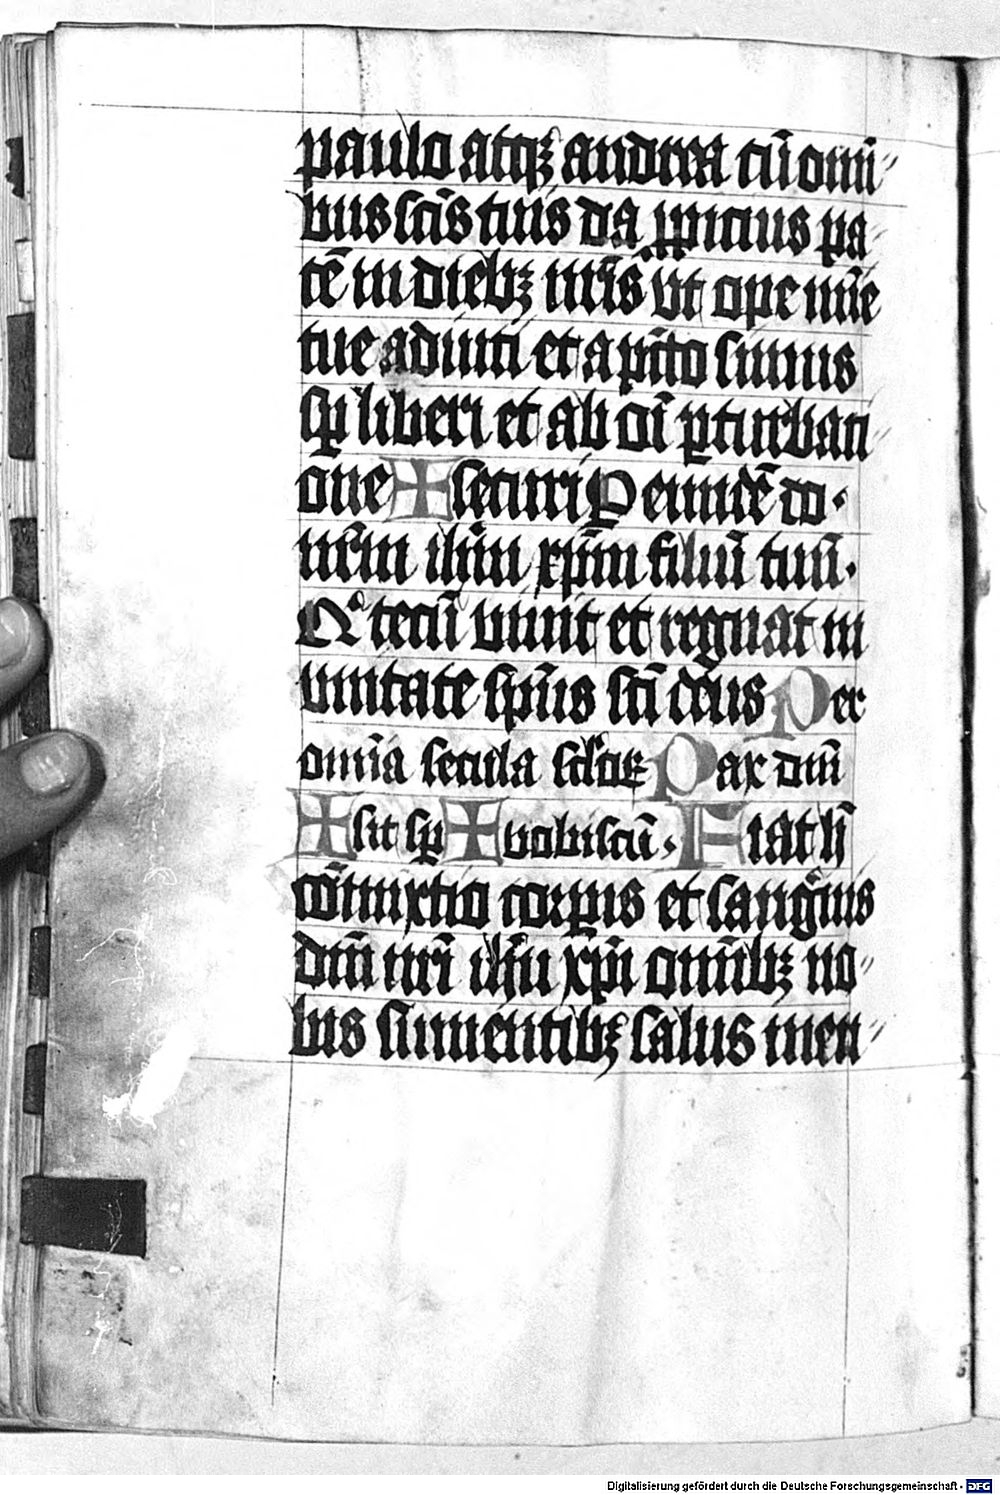 paulo atqꝫ andrea cū omī-
bus scīs tuis da ꝓpicius pa-
cē in diebꝫ nr̄is vt ope mīe
tue adiuti et a pcc̄to simus
sꝑ liberi et ab oī ꝑturbati-
one ✠ securi Per eundē do-
nr̄m ihm̄ xp̄m filiū tuū.
Qͥ tecū viuit et regnat in
vnitate sp̄us sc̄i deus Per
omīa secula sclōꝝ Pax dn̄i
✠ sit sꝑ ✠ vobiscū. Fiat h̄
cōmixtio corpus et sangͥnis
dn̄i nr̄i ihū xp̄i omībꝫ no-
bis sumentibꝫ salus men-
Digitalisierung gefördert durch die Deutsche Forschungsgemeinschaft - DFG